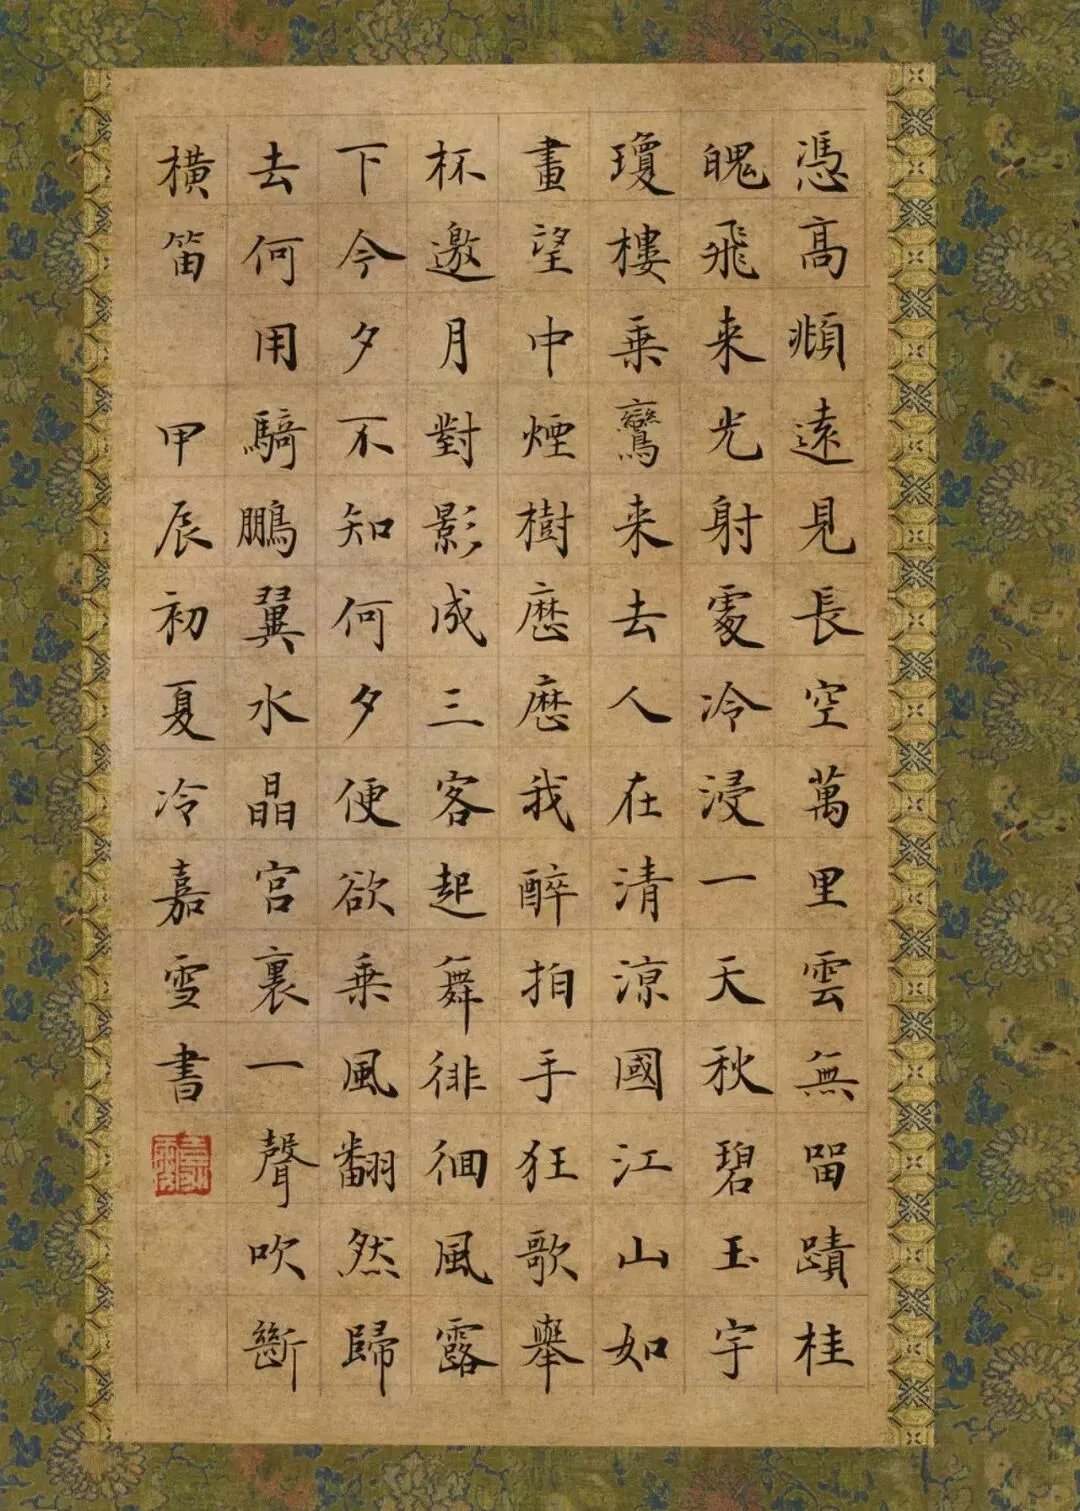 憑高頫遠見長空萬里雲無畱蹟桂
魄飛来光射處冷浸一天秋碧玉宇
瓊樓乗鸞来去人在清涼國江山如
畫望中煙樹歷歷我醉拍手狂歌舉
杯邀月對影成三客起舞徘徊風露
下今夕不知何夕便欲乗風翻然歸
去何用騎鵬翼水晶宮裏一聲吹斷
橫笛
甲辰初夏冷嘉雪書